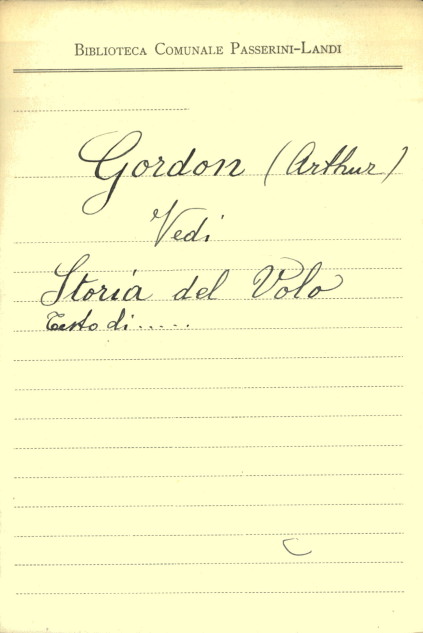 BIBLIOTECA COMUNALE PASSERINI-LANDI
Gordon (Arthur)
Vedi
Storia del Volo
Testo di.....